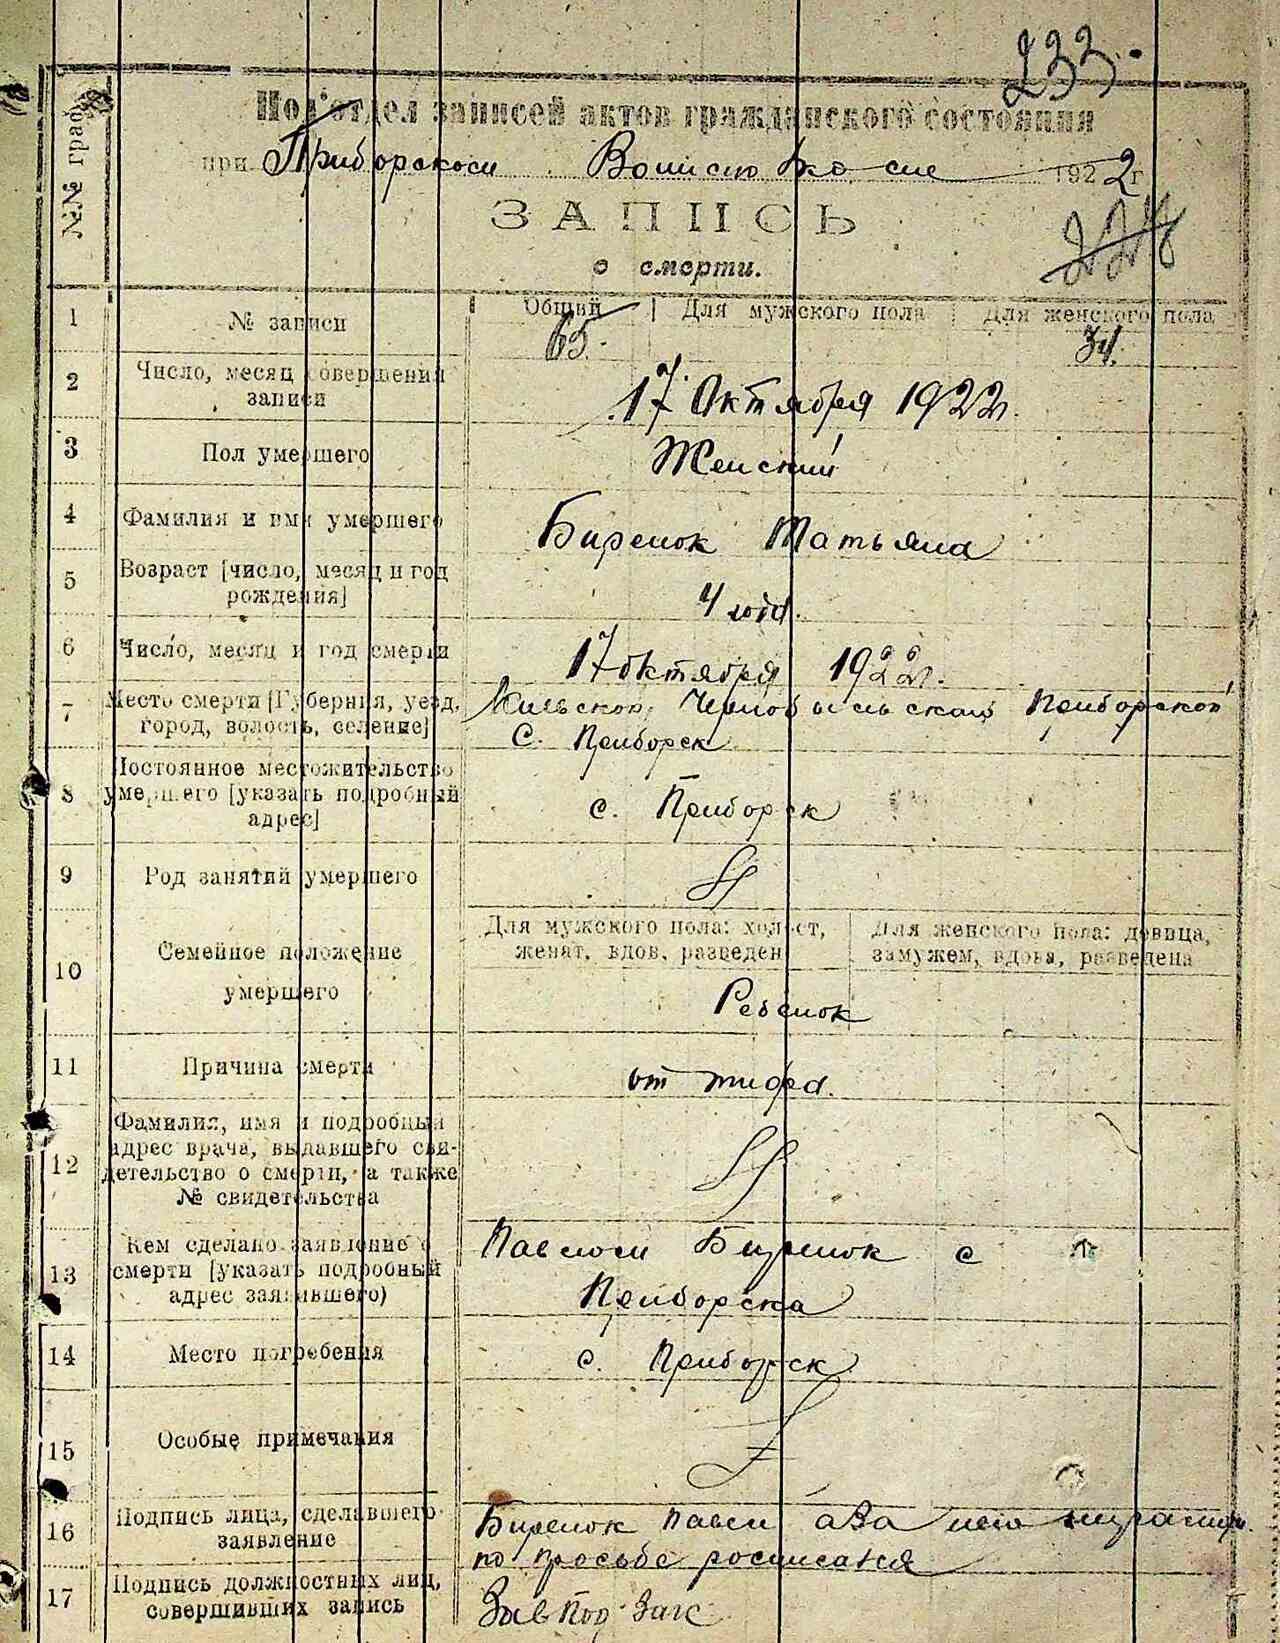 233.
№№ графы
Подотдел записей актов гражданского состояния
при Приборском Волисполкоме 1922 г.
ЗАПИСЬ
о смерти.
1 № записи Общий Для мужского пола Для женского пола
65. 34.
2 Число, месяц совершения
записи
17 Октября 1922 г.
3 Пол умершего Женский
4 Фамилия и имя умершего Биренок Татьяна
5 Возраст [число, месяц и год
рождения]
4 года.
6 Число, месяц и год смерти 17 октября 1922 г.
7 Место смерти [Губерния, уезд,
город, волость, селение]
Чернобыльскаго Приборской
с. Приборск
8 Постоянное местожительство
умершего [указать подробный
адрес]
с. Приборск
9 Род занятий умершего
10 Семейное положение
умершего
Для мужского пола: холост,
женат, вдов, разведен
Для женского пола: девица,
замужем, вдова, разведена
Ребенок
11 Причина смерти от тифа.
12 Фамилия, имя и подробный
адрес врача, выдавшего сви-
детельство о смерти, а также
№ свидетельства
13 Кем сделано заявление о
смерти [указать подробный
адрес заявившего)
Павлом Биренок с
Приборска
14 Место погребения с. Приборск
15 Особые примечания
16 Подпись лица, сделавшего
заявление
Биренок Павел а за него
по просьбе росписался
17 Подпись должностных лиц,
совершивших запись
Зав Под Загс